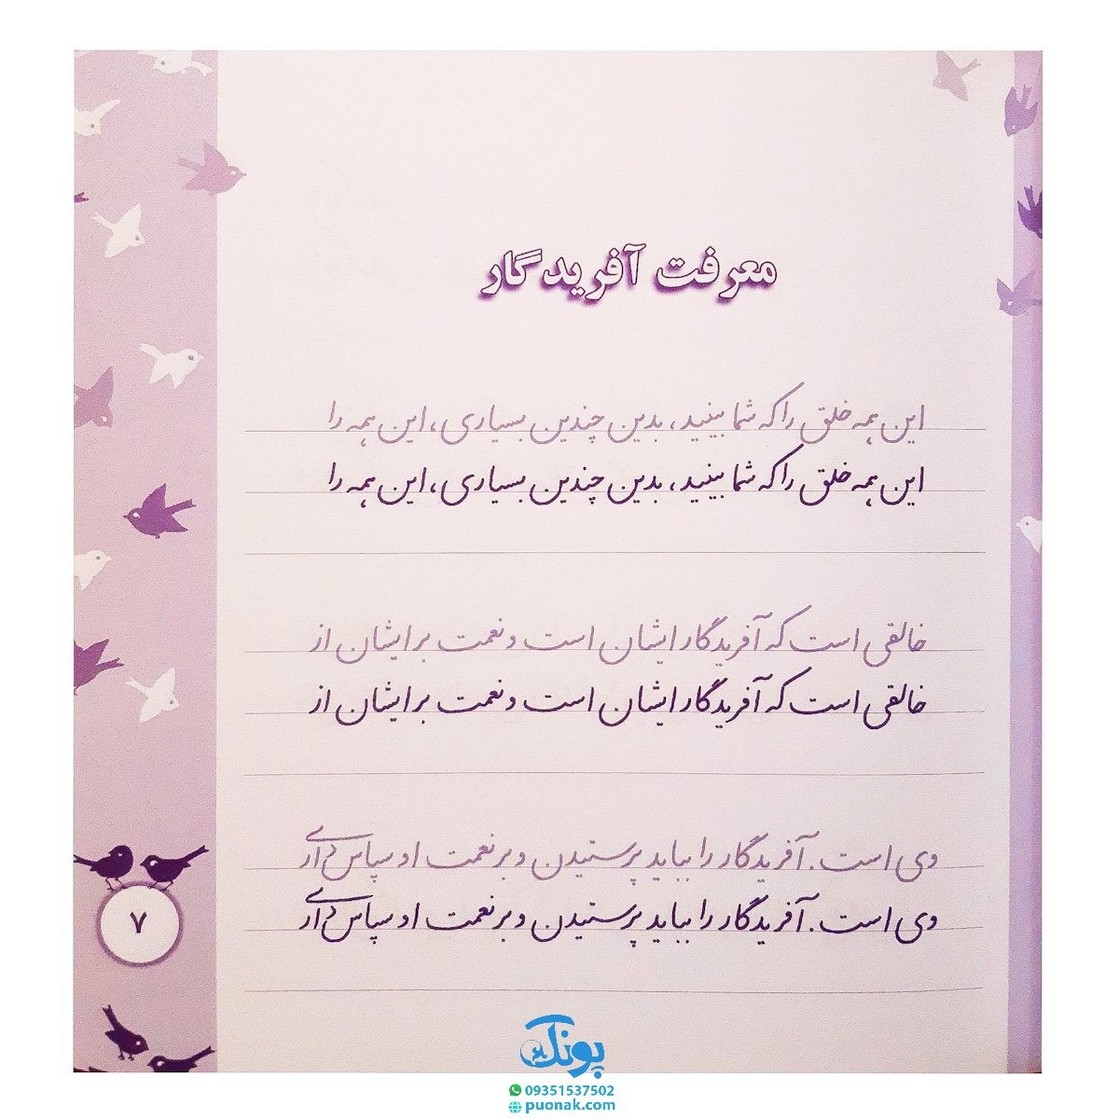 معرفت آفریدگار
این همه خلق را که شما بینید، بدین چندین بسیاری، این همه را
این همه خلق را که شما بینید، بدین چندین بسیاری، این همه را
خالقی است که آفریدگار ایشان است و نعمت بر ایشان از
خالقی است که آفریدگار ایشان است و نعمت بر ایشان از
وی است. آفریدگار را بباید پرستیدن و بر نعمت او سپاس‌داری
وی است. آفریدگار را بباید پرستیدن و بر نعمت او سپاس‌داری
۷
پونک
09351537502
puonak.com